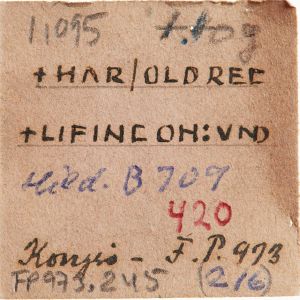 11095 t.tog
+HAR/OLDREC
+LIFINCOH:VND
Hild. B 709
420
Kongis - F.P. 973
FP973.245 (216)